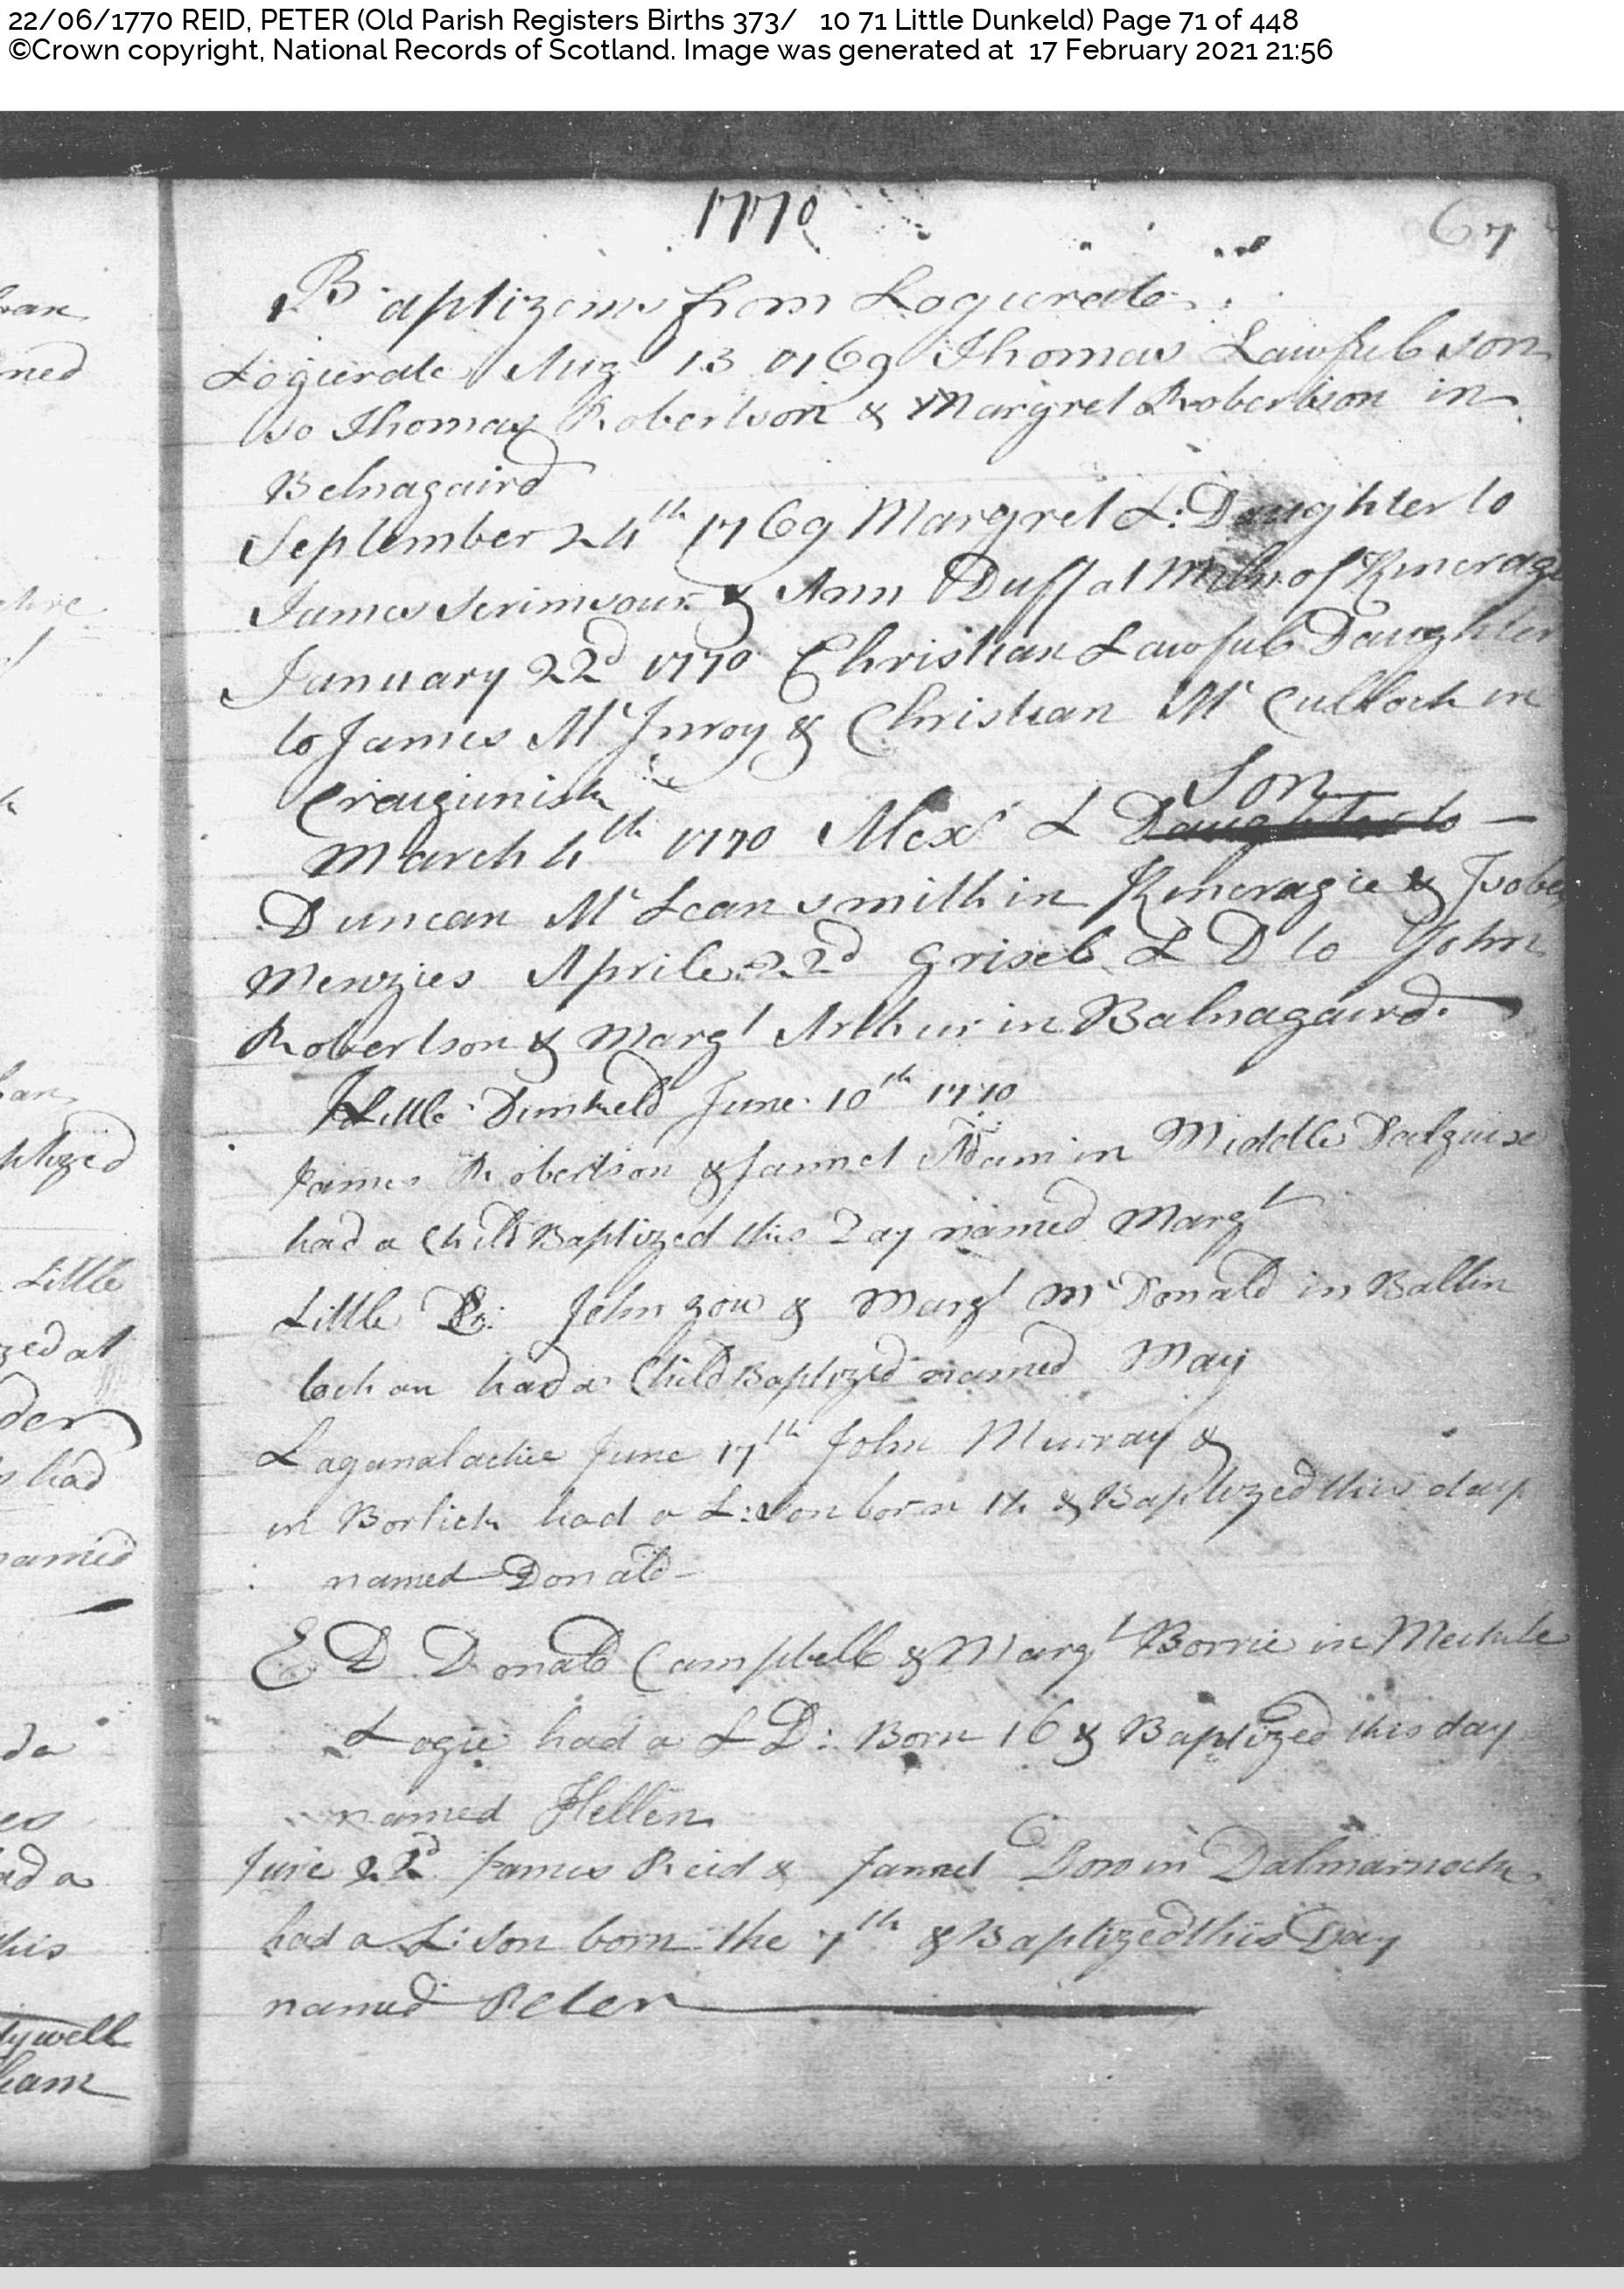 22/06/1770 REID, PETER (Old Parish Registers Births 373/ 10 71 Little Dunkeld) Page 71 of 448
©Crown copyright, National Records of Scotland. Image was generated at 17 February 2021 21:56
1770
67
Baptizems from Logierate
Logierate Aug 13 1769 Thomas Lawful son
to Thomas Robertson & Margret Robertson in
Belnagaird
September 24th 1769 Margret L: Daughter to
James Scrimsour & Ann Duff at Miln of Kincragie
January 22d 1770 Christian Lawful Daughter
to James Mc Inroy & Christian Mc Culloch in
Craigunish
Son
March 4th 1770 Alexr L Daughter to
Duncan Mc Lean smith in Kincragie & Isobel
Menzies Aprile 22d Grisel L D to John
Robertson & Margt Arthur in Balnagaird.
Little Dunkeld June 10th 1770
James Robertson & Jannet Adam in Middle Dalguise
had a Child Baptized this Day named Margt
Little D: John Gow & Margt Mc Donald in Ballin
loch an had a Child Baptized named May
Laganalachie June 17th John Murray &
in Borlich had a L: son born 14 & Baptized this day
named Donald
E D Donald Campbell & Margt Borrie in Meikle
Logie had a L D: Born 16 & Baptized this day
named Hellen
June 22d James Reid & Jannet Gow in Dalmarnoch
had a L: son born the 7th & Baptized this Day
named Peter
ned
Little
zed at
der
had
named
had a
this
ywell
ham